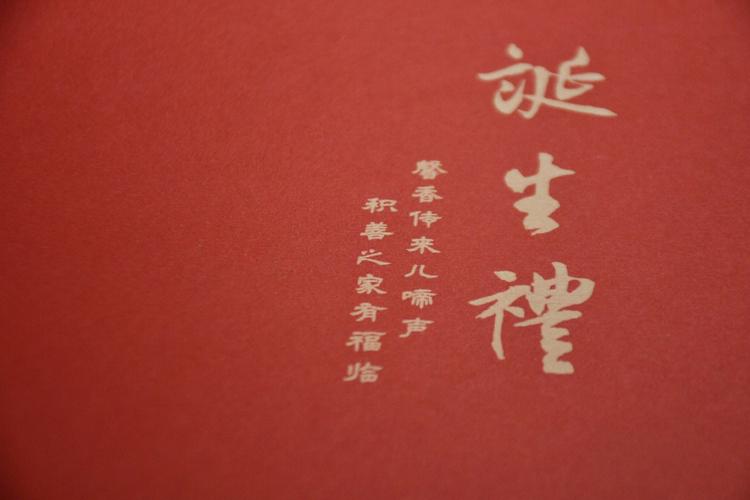 誕生禮
馨香传来儿啼声
积善之家有福临